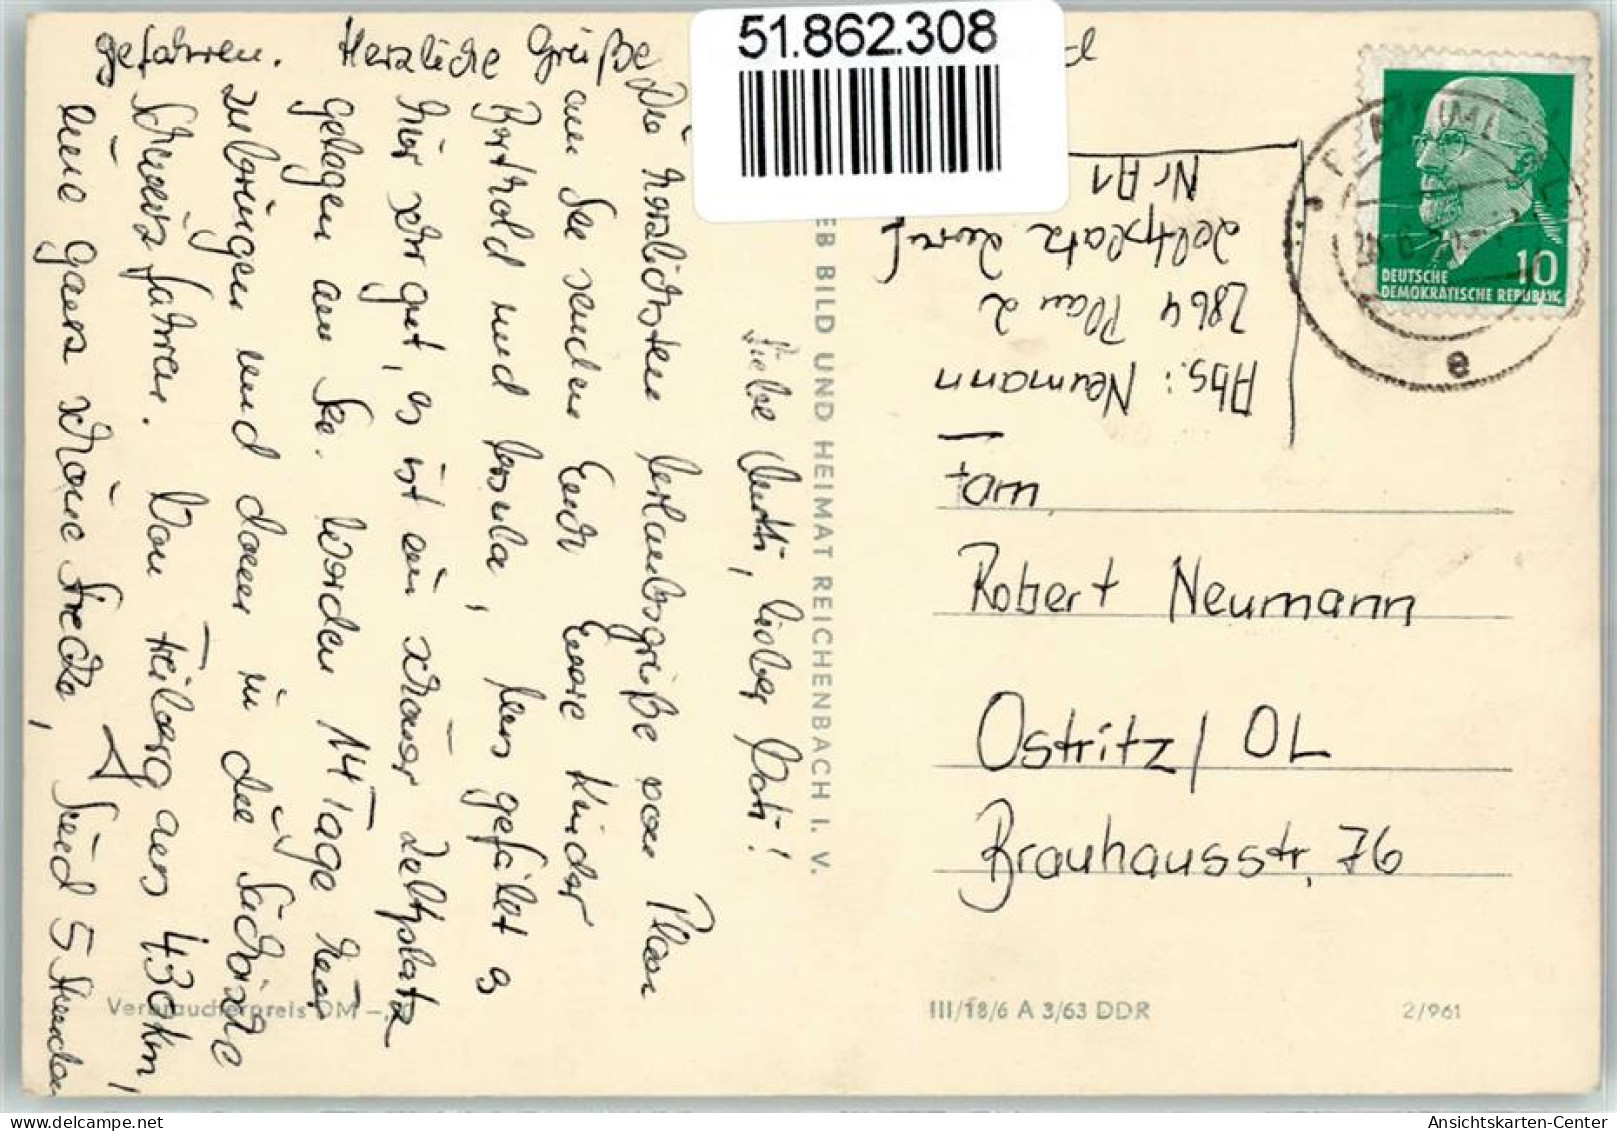 51.862.308
Liebe Mutti, lieber Vati!
Die herzlichsten Urlaubsgrüße von Plauer
am See senden Euch Eure Kinder
Berthold und Ursula, Uns gefällt es
hier sehr gut, es ist ein schöner Zeltplatz
gelegen am See. Werden 14 Tage hier
zubringen und dann in die Sächsische
Schweiz fahren. Von Freiberg aus 430 km,
eine ganz schöne Strecke, Sind 5 Stunden
gefahren. Herzliche Grüße
EB BILD UND HEIMAT REICHENBACH I. V.
Verbraucherpreis DM –,
Abs.: Neumann
2864 Plau 2
Zeltplatz
Nr A1
10
DEUTSCHE
DEMOKRATISCHE REPUBLIK
e
Fam.
Robert Neumann
Ostritz / OL
Brauhausstr. 76
III/18/6 A 3/63 DDR
2/961
Ansichtskarten-Center